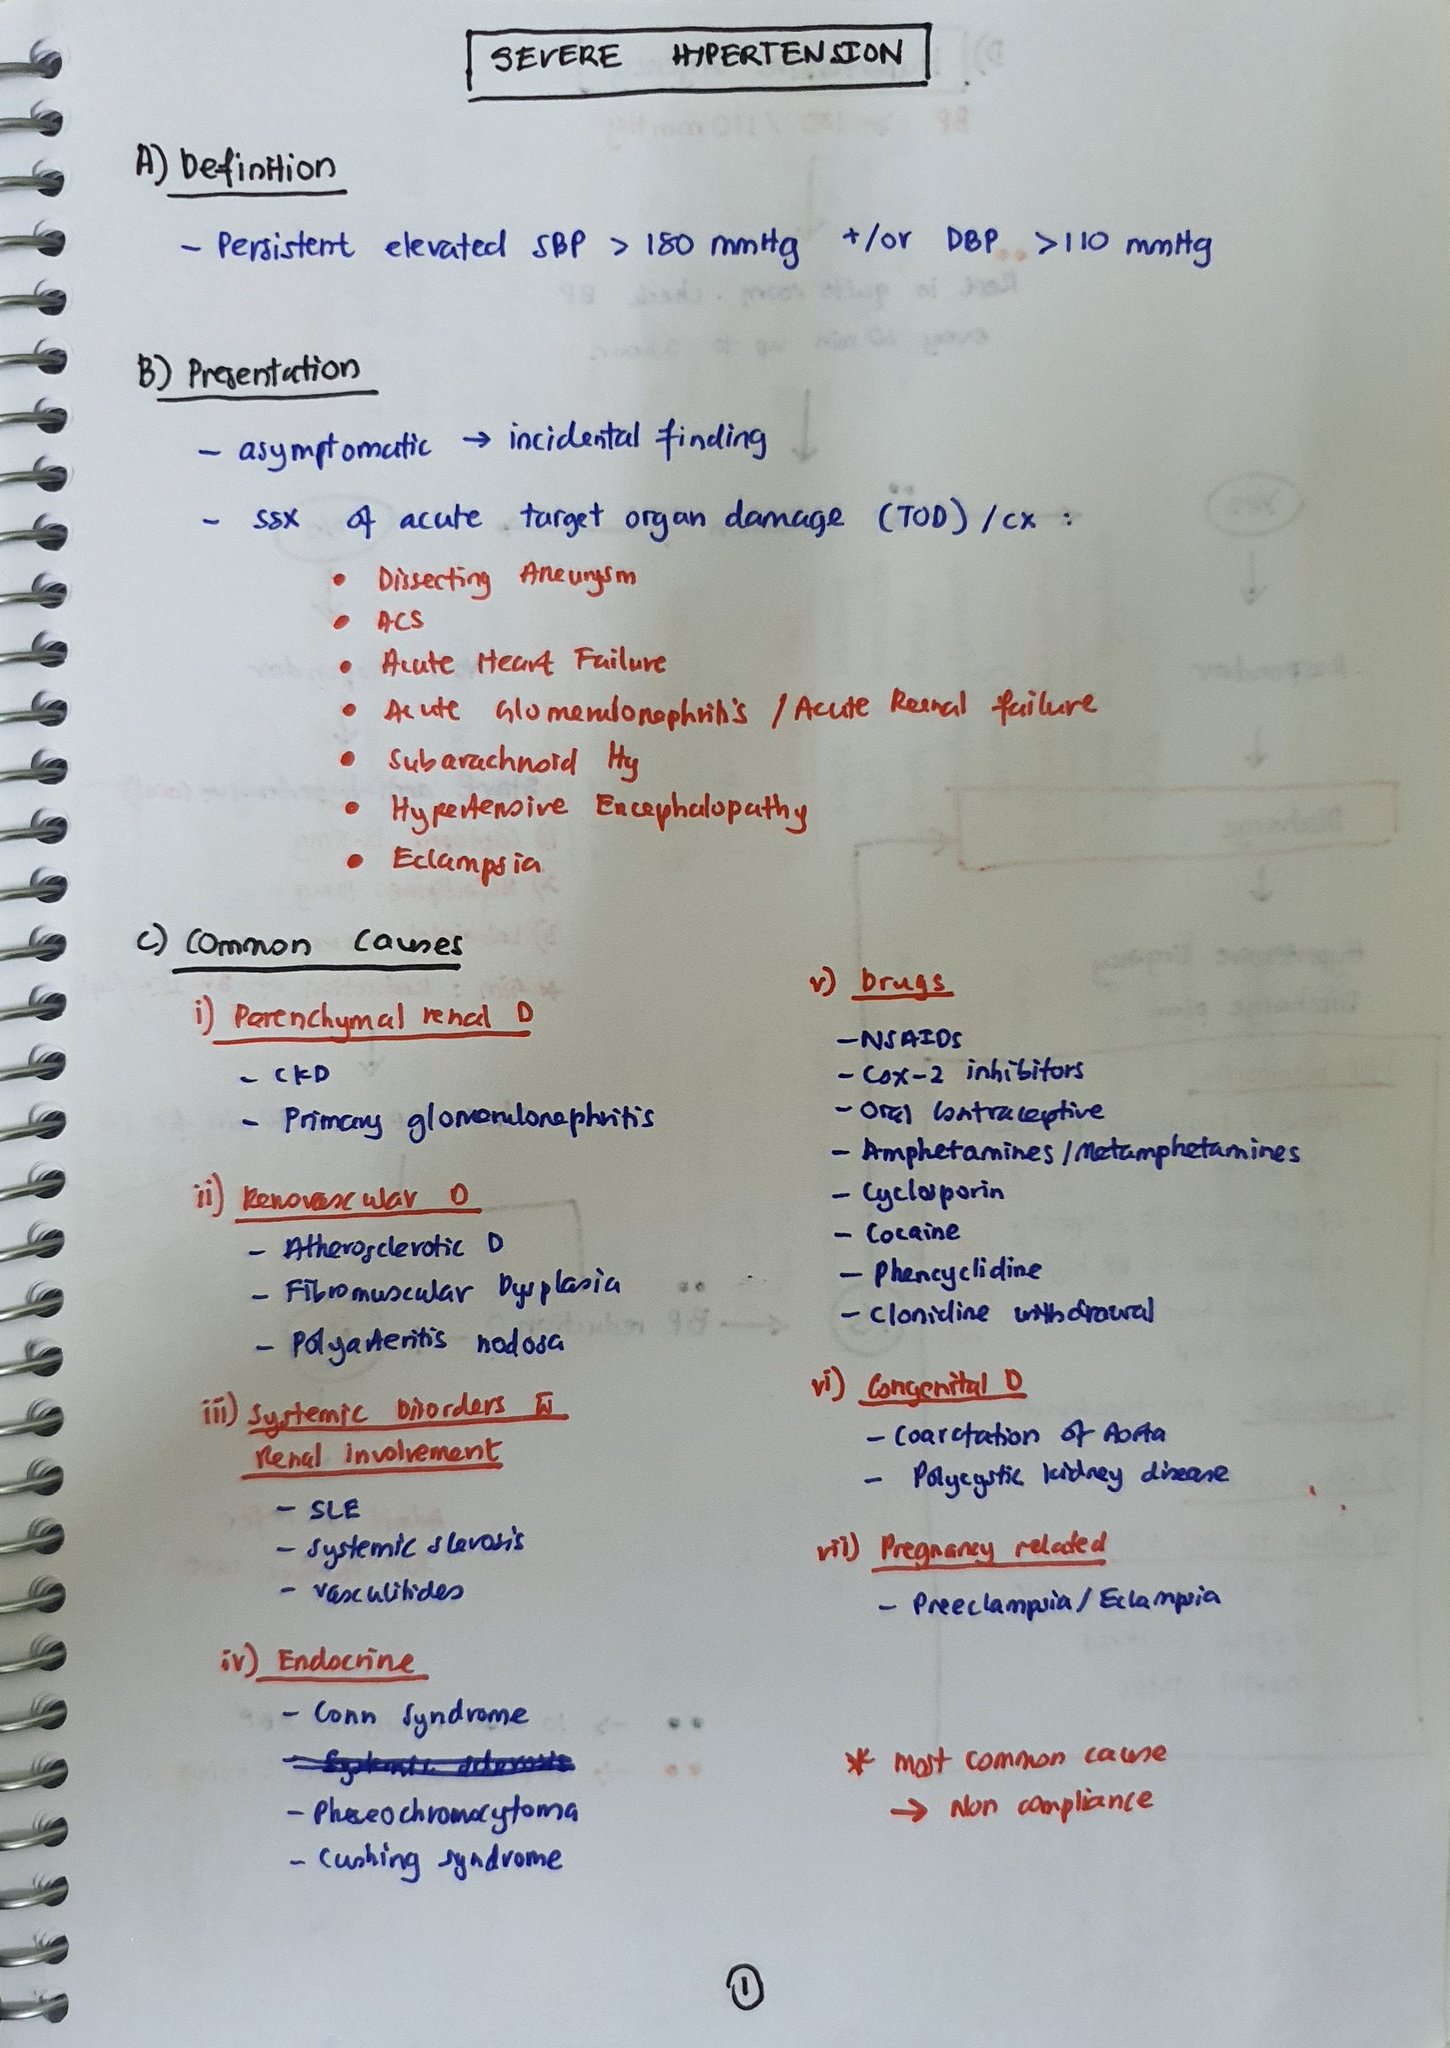 SEVERE HYPERTENSION
A) Definition
- Persistent elevated SBP > 180 mmHg +/or DBP > 110 mmHg
B) Presentation
- asymptomatic → incidental finding
- SSX of acute target organ damage (TOD) / CX :
• Dissecting Aneurysm
• ACS
• Acute Heart Failure
• Acute Glomerulonephritis / Acute Renal failure
• Subarachnoid Hg
• Hypertensive Encephalopathy
• Eclampsia
C) Common Causes
i) Parenchymal renal D
- CKD
- Primary glomerulonephritis
ii) Renovascular D
- Atherosclerotic D
- Fibromuscular Dysplasia
- Polyarteritis nodosa
iii) Systemic Disorders w̄
Renal involvement
- SLE
- Systemic slerosis
- vasculitides
iv) Endocrine
- Conn syndrome
- Phaeochromocytoma
- Cushing syndrome
v) Drugs
- NSAIDs
- Cox-2 inhibitors
- Oral Contraceptive
- Amphetamines / Metamphetamines
- Cyclosporin
- Cocaine
- Phencyclidine
- Clonidine withdrawal
vi) Congenital D
- Coarctation of Aorta
- Polycystic kidney disease
vii) Pregnancy related
- Preeclampsia / Eclampsia
* most common cause
→ Non compliance
1